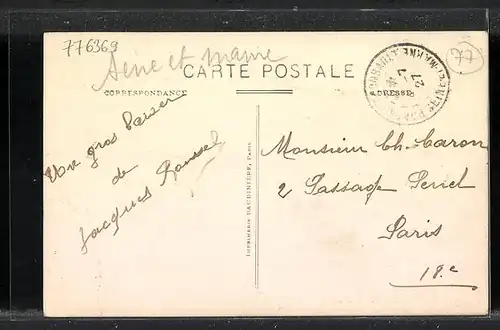 776369
77
Seine et marne
CARTE POSTALE
CORRESPONDANCE
ADRESSE
SEINE-ET-MARNE
27
Un gros baiser
de
Jacques Roussel
IMPRIMERIE BAUDINIÈRE, PARIS
Monsieur Ch. Caron
2 Passage Periel
Paris
18.e